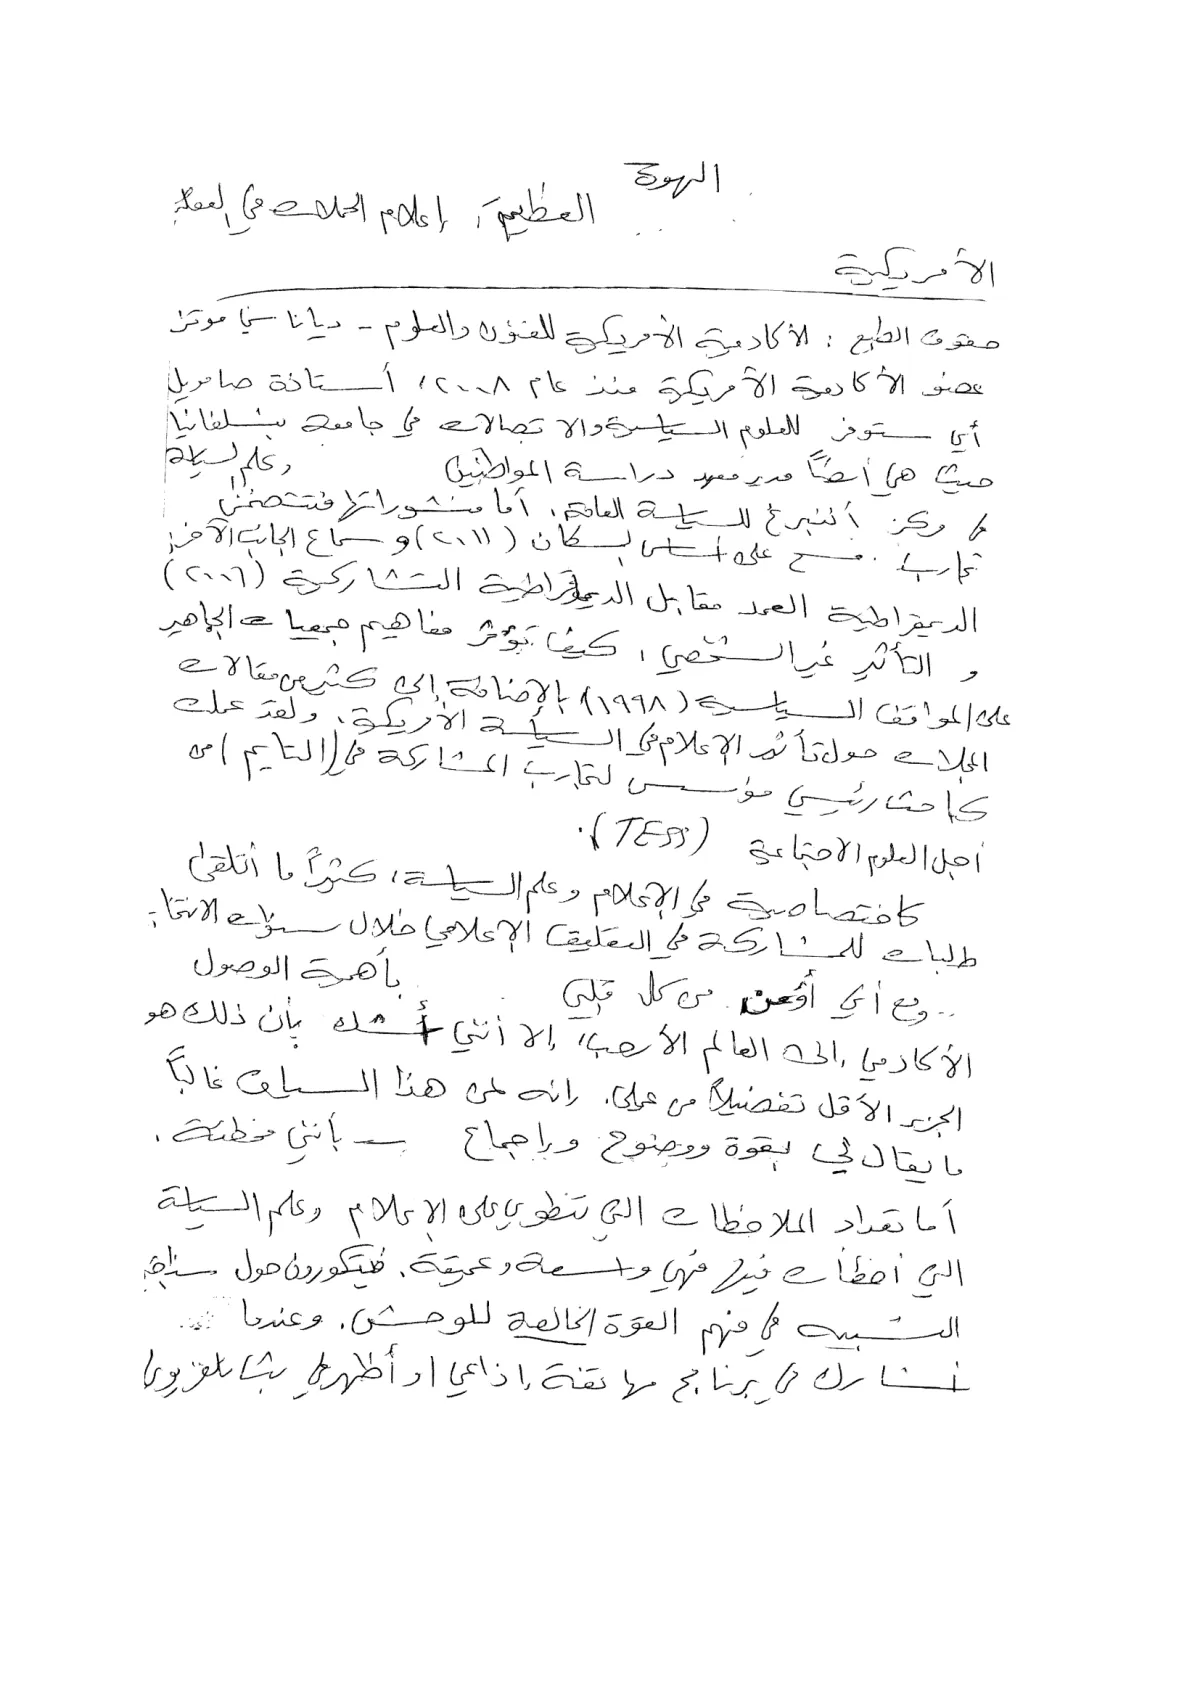 الهوة
العظيمة، إعلام الحملات في
الأمريكية
حقوق الطبع: الأكادمية الأمريكية للفنون والعلوم - ديانا سي موتز
عضو الأكادمية الأمريكية منذ عام ٢٠٠٨، أستاذة صامويل
أي ستوفر للعلوم السياسية والاتصالات في جامعة بنسلفانيا
حيث هي أيضاً مدير معهد دراسة المواطنين وعلم السياسة
في مركز أننبرغ للسياسة العامة. أما منشوراتها فتتضمن
تجارب مسح على أساس السكان (٢٠١١) و سماع الجانب الآخر:
الديمقراطية العمد مقابل الديمقراطية التشاركية (٢٠٠٦)
و التأثير غير الشخصي، كيف تؤثر مفاهيم جمعيات الجماهير
على المواقف السياسية (١٩٩٨) بالإضافة إلى كثير من مقالات
المجلات حول تأثير الإعلام في السياسة الأمريكية. ولقد عملت
كباحث رئيسي مؤسس لتجارب المشاركة في (التايم) من
أجل العلوم الاجتماعية (TESS).
كاختصاصية في الإعلام وعلم السياسة، كثيراً ما أتلقى
طلبات للمشاركة في التعليق الإعلامي خلال سنوات الانتخاب
.. ومع أني أؤمن من كل قلبي بأهمية الوصول
الأكادمي إلى العالم الأرحب، إلا أنني أشك بأن ذلك هو
الجزء الأقل تفضيلاً من عملي. إنه لمن هذا السياق غالباً
ما يقال لي بقوة ووضوح وبإجماع – بأنني مخطئة.
أما تعداد الملاحظات التي تنطوي على الإعلام وعلم السياسة
التي أخطأت فيها فهي واسعة وعميقة. فيتكورون حول
التشبيه في فهم القوة الخالصة للوحش. وعندما
أشارك في برنامج مهاتفة إذاعي أو أظهر في بث تلفزيوني